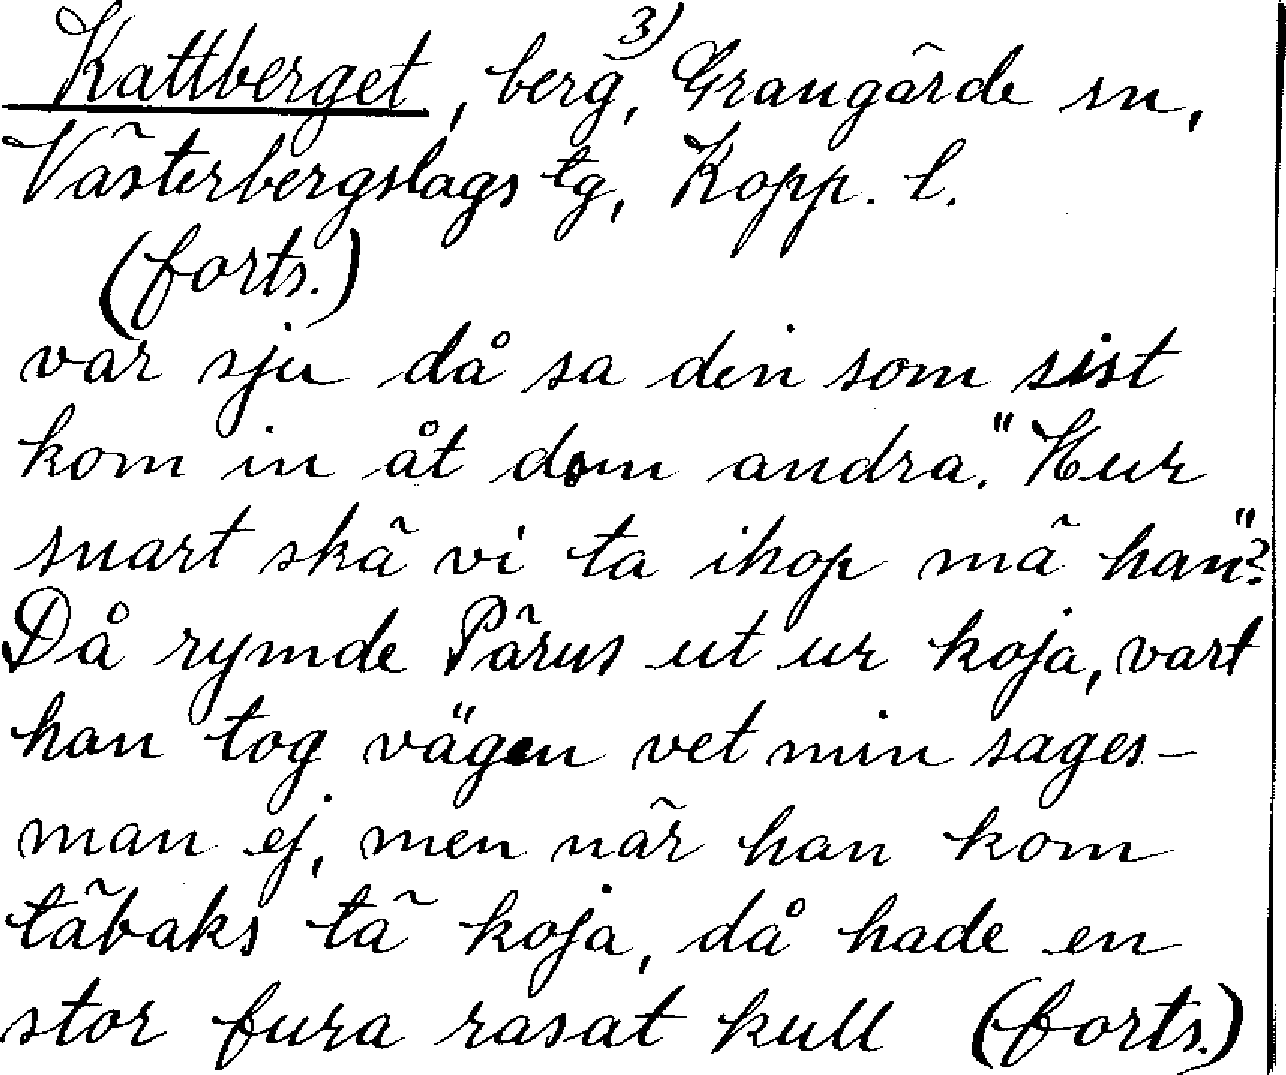 Kattberget, berg,³⁾ Grangärde sn,
Västerbergslags tg, Kopp. l.
(forts.)
var sju då sa den som sist
kom in åt dom andra. "Hur
snart skä vi ta ihop mä han"?
Då rymde Pärus ut ur koja, vart
han tog vägen vet min sages-
man ej, men när han kom
täbaks tä koja, då hade en
stor fura rasat kull (forts.)